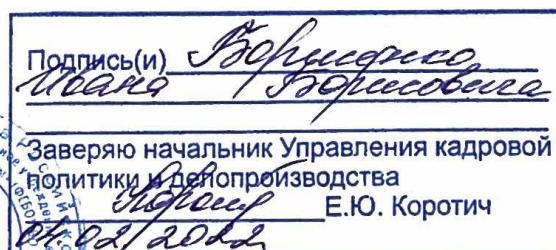 Подпись(и) Борисенко
Ивана Борисовича
Заверяю начальник Управления кадровой
политики и делопроизводства
Е.Ю. Коротич
04.02.2022